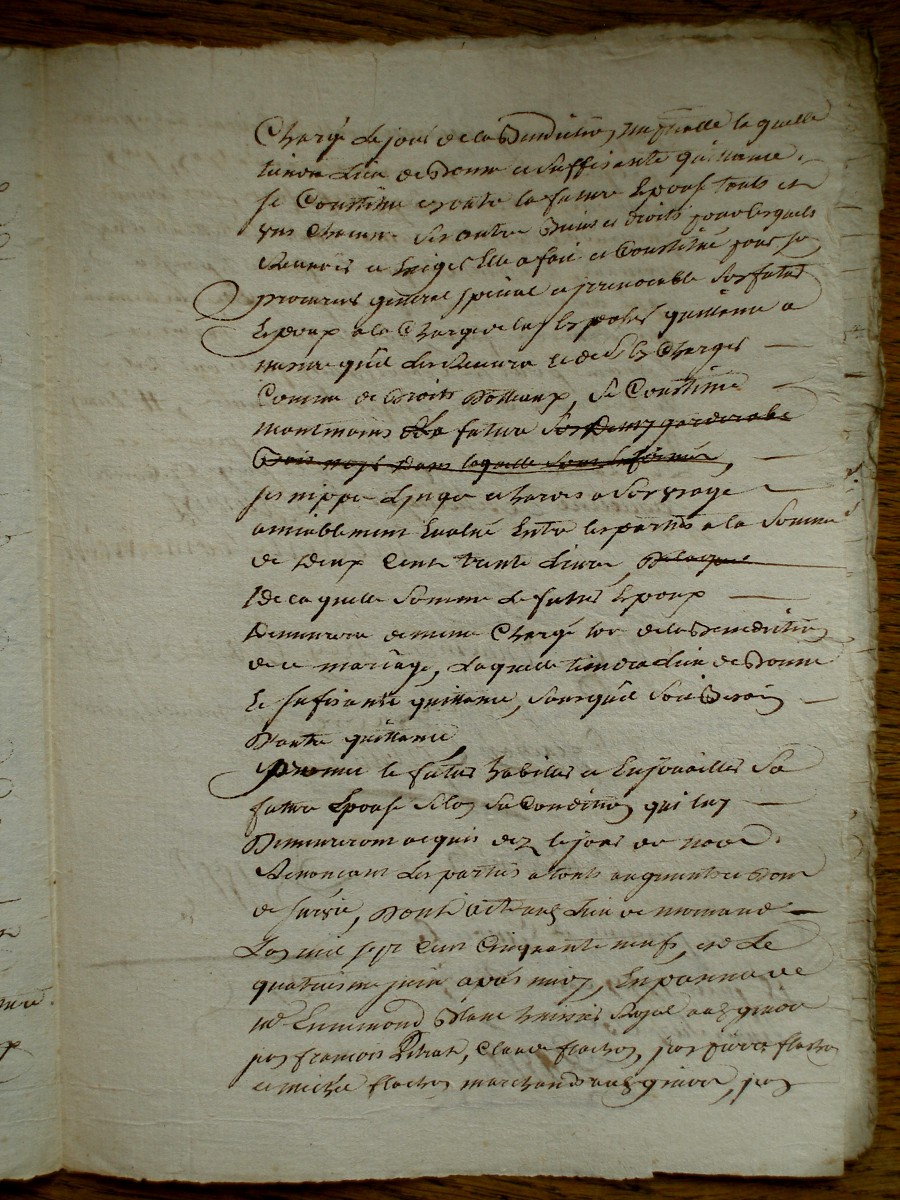 Chargé le jour de la Benediction nuptialle laquelle
tiendra lieu de bonne et suffisante quittance.
se Constitue en outre la future Epouse touts et
uns Chacuns ses autres biens et droits pour lesquels
Recouvrer et Exiger Elle a fait et Constitué pour son
procureur general special et irrevocable son futur
Epoux a la Charge de passer quittance a
mesure qu'il les Recevra et de s'en Charger
Comme de droits Dottaux, se Constitue
neantmoins la future
ses nippes linges et hardes a son usage
amiablement Evalué Entre les parties a la somme
de deux Cent trente livres, De laquelle
De laquelle somme le futur Epoux
Demeurera de meme Chargé lors de la Benediction
de ce mariage, laquelle tiendra lieu de bonne
Et suffisante quittance, sans qu'il soit besoin
D'autre quittance,
promet le futur habiller et Enjoailler sa
future Epouse selon sa Condition qui luy
Demeureront acquis dez le jour de noce.
Renonceant les parties a touts augments et Dons
de survie, Dont acte lieu de
L'an mil sept Cent Cinquante neuf, et le
quatrieme juin apres midy, En presence de
me Ennemond Blanc huissier Royal
sr françois, Claude flachon, sr pierre flachon
et michel flachon marchands, sr